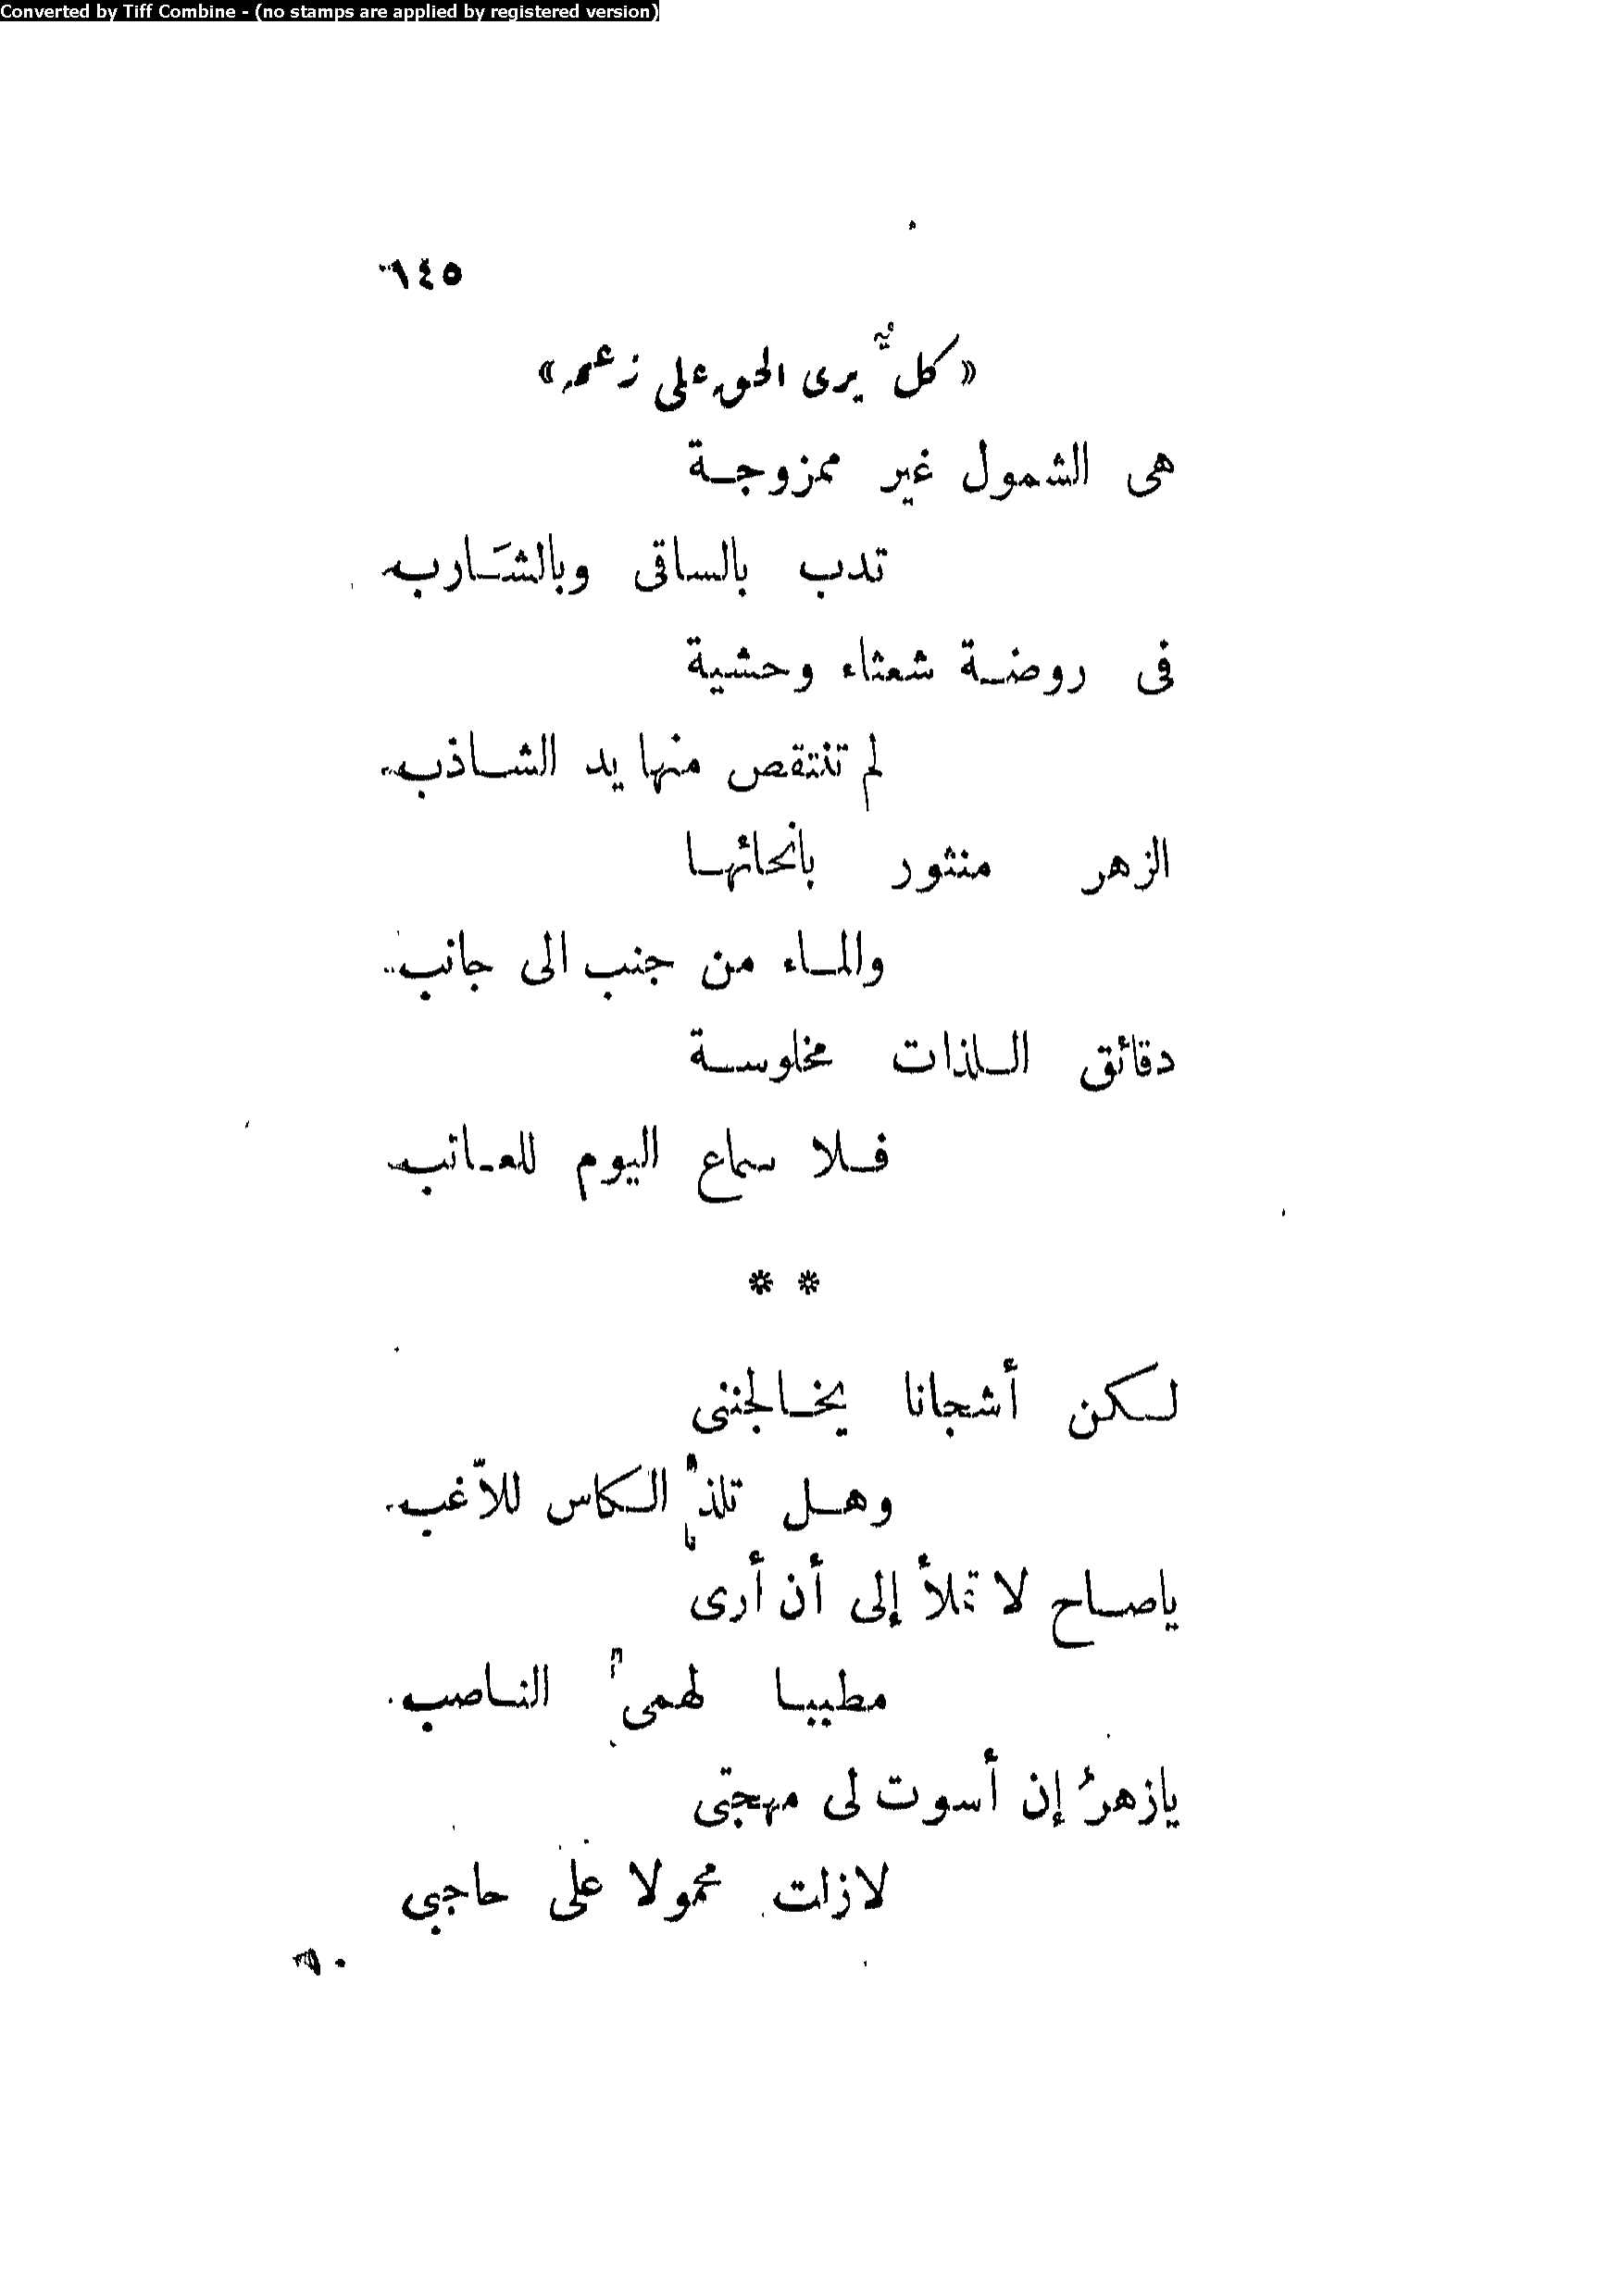 Converted by Tiff Combine - (no stamps are applied by registered version)
١٤٥
« كلٌّ يرى الحق على زعمه »
هى الشمول غير ممزوجة
تدب بالساقى وبالشَارب
فى روضة شعثاء وحشية
لم تنتقص منها يد الشاذب
الزهر منثور بانحائها
والماء من جنب الى جانب
دقائق اللذات مخلوسة
فلا سماع اليوم للعاتب
* *
لكن أشجانا يخالجننى
وهل تلذ الكاس للاّغب
ياصاح لا تملأ إلى أن أرى
مطيبا لهمى الناصب
يازهرُ إن أسوت لى مهجتى
لازلت محمولا على حاجبى
١٠